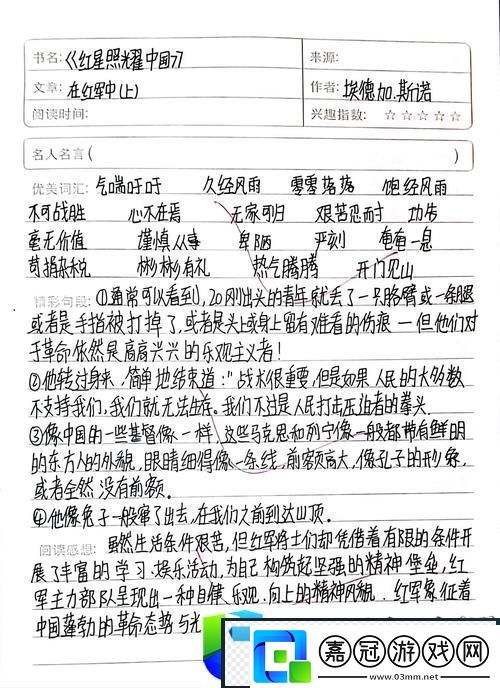 书名:《红星照耀中国》 来源:
文章: 在红军中(上) 作者: 埃德加.斯诺
阅读时间: 兴趣指数: ☆☆☆☆☆
名人名言( )
优美词汇: 气喘吁吁 久经风雨 零零落落 饱经风雨
不可战胜 心不在焉 无家可归 艰苦忍耐 功伟
毫无价值 谨慎从事 卑陋 严刻 奄奄一息
苛捐杂税 彬彬有礼 热气腾腾 开门见山
精彩句段: ①通常可以看到,20刚出头的青年就丢了一只胳臂或一条腿
或者是手指被打掉了,或者是头上或身上留有难看的伤痕一但他们对
于革命依然是高高兴兴的乐观主义者!
②他转过身来,简单地结束道:"战术很重要,但是如果人民的大多数
不支持我们,我们就无法生存。我们不过是人民打击压迫者的拳头.
③像中国的一些基督像一样,这些马克思和列宁像一般都带有鲜明
的东方人的外貌,眼睛细得像一条线,前额高大,像孔子的形象,
或者全然没有前额。
④他像兔子一般窜了出去,在我们之前到达山顶。
阅读感想: 虽然生活条件艰苦,但红军将士们却凭借着有限的条件开
展了丰富的学习.娱乐活动,为自己构筑起坚强的精神堡垒,红
军主力部队呈现出一种自健、乐观、向上的精神风貌.红军象征着
中国蓬勃的革命态势与光
嘉冠游戏网
www.03mm.net